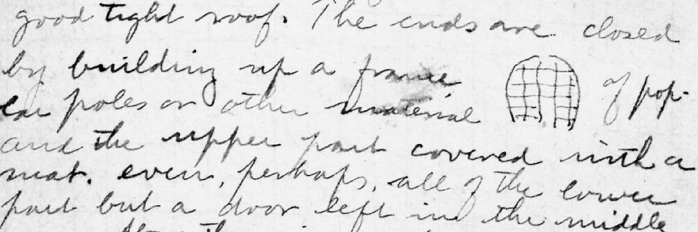 good tight roof. The ends are closed
by building up a frame of pop-
lar poles or other material
and the upper part covered with a
mat. even, perhaps, all of the lower
part but a door left in the middle